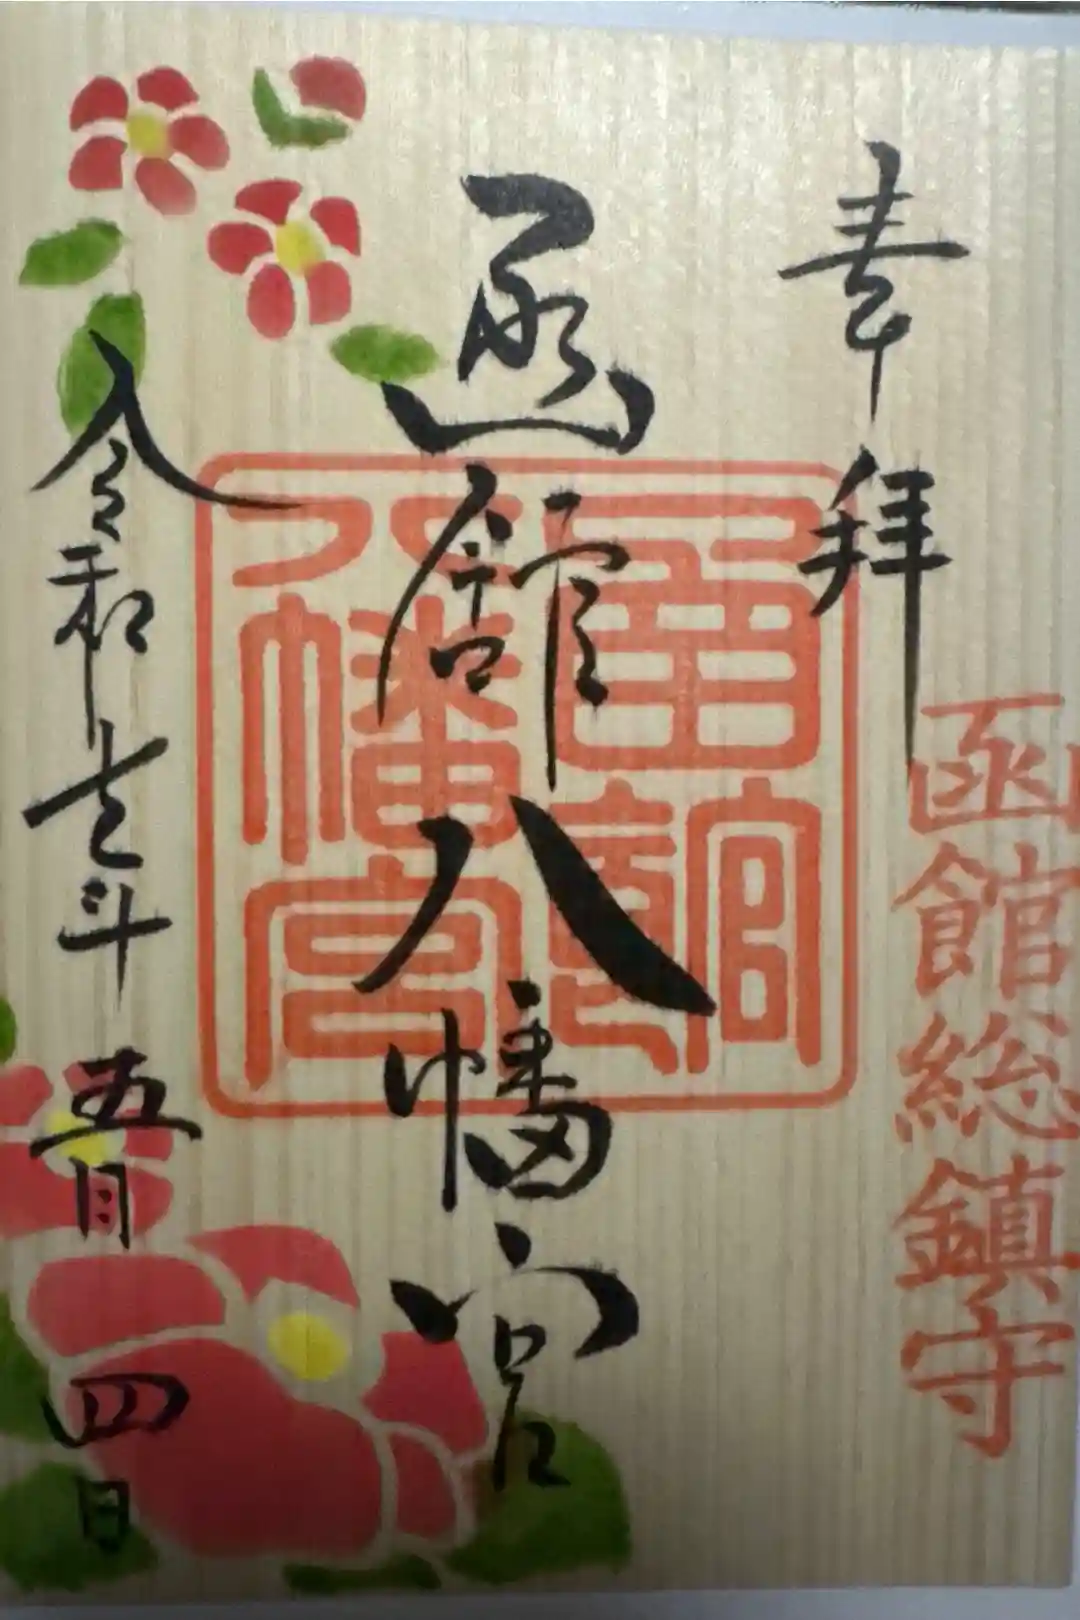 奉拝
函館総鎮守
函館八幡宮
函館八幡宮
令和元年五月四日